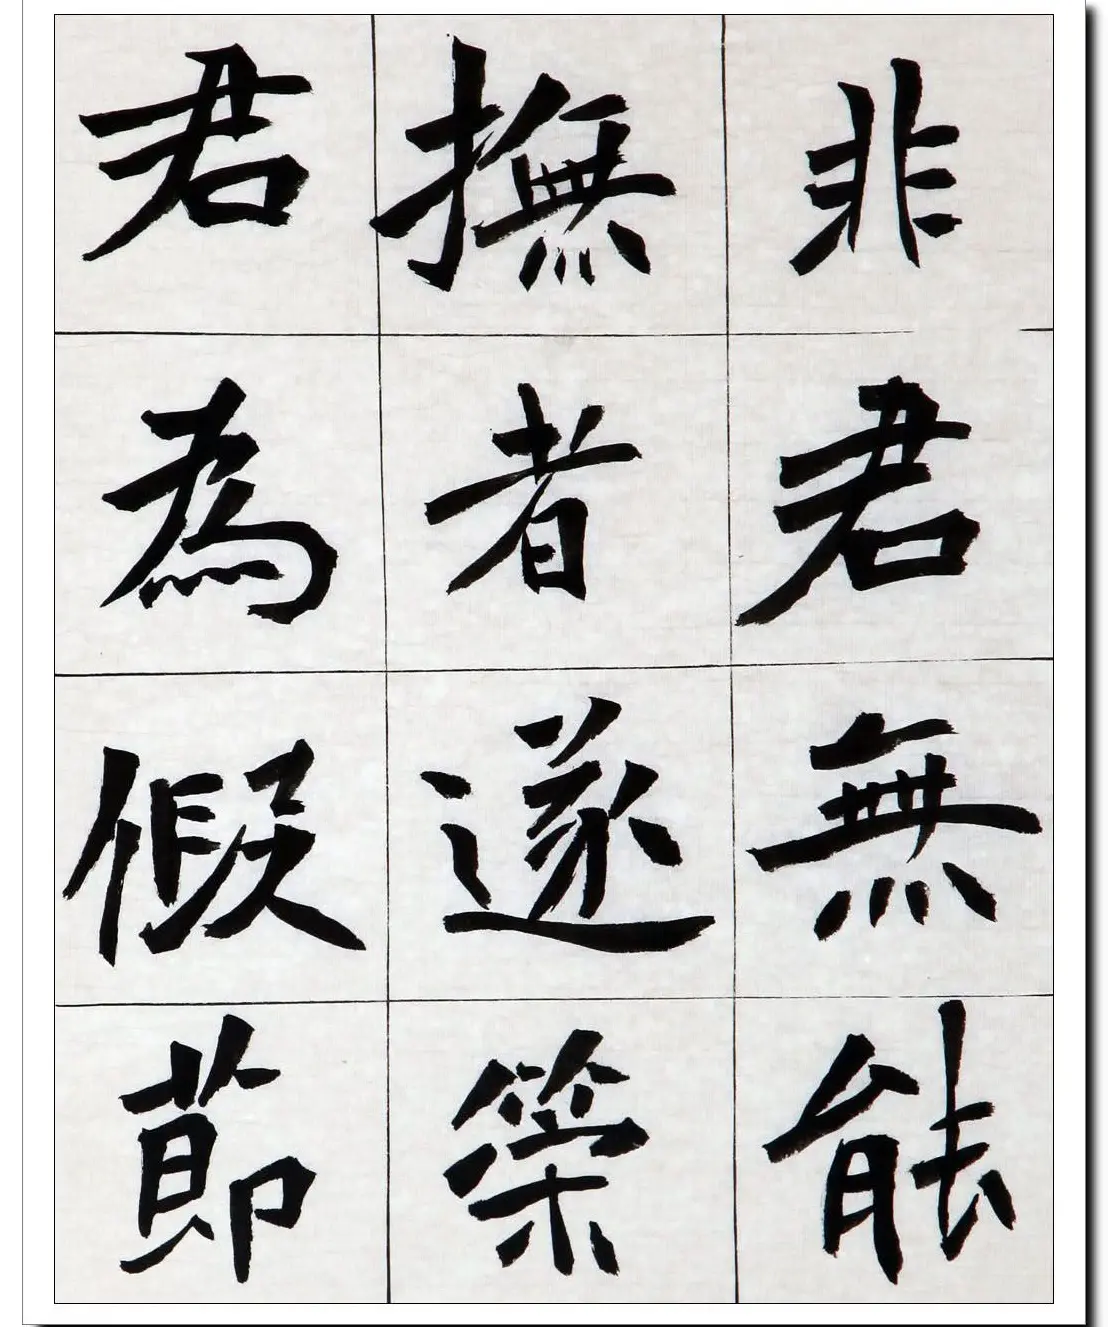 非君無能
撫者遂策
君為假節